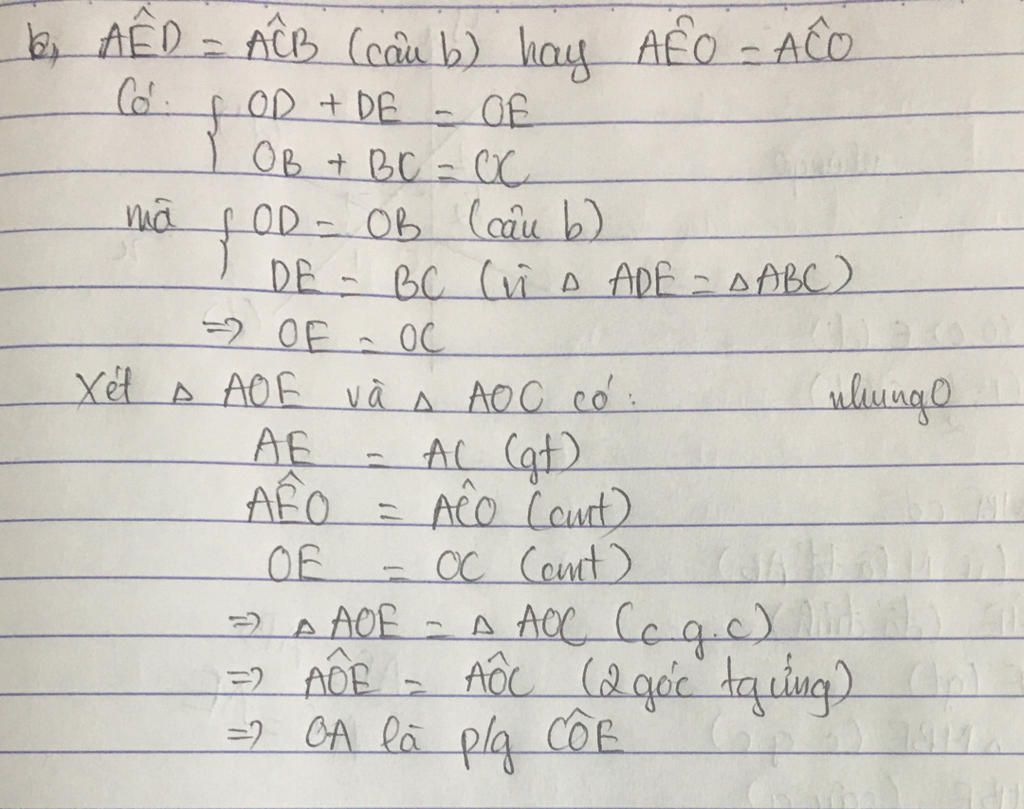 c, AÊD = AĈB (câu b) hay AÊO = AĈO
Có: { OD + DE = OE
OB + BC = OC
mà { OD = OB (câu b)
DE = BC (vì Δ ADE = Δ ABC)
=> OE = OC
Xét Δ AOE và Δ AOC có: nhungO
AE = AC (gt)
AÊO = AĈO (cmt)
OE = OC (cmt)
=> Δ AOE = Δ AOC (c.g.c)
=> AÔE = AÔC (2 góc tg ứng)
=> OA là p/g CÔE